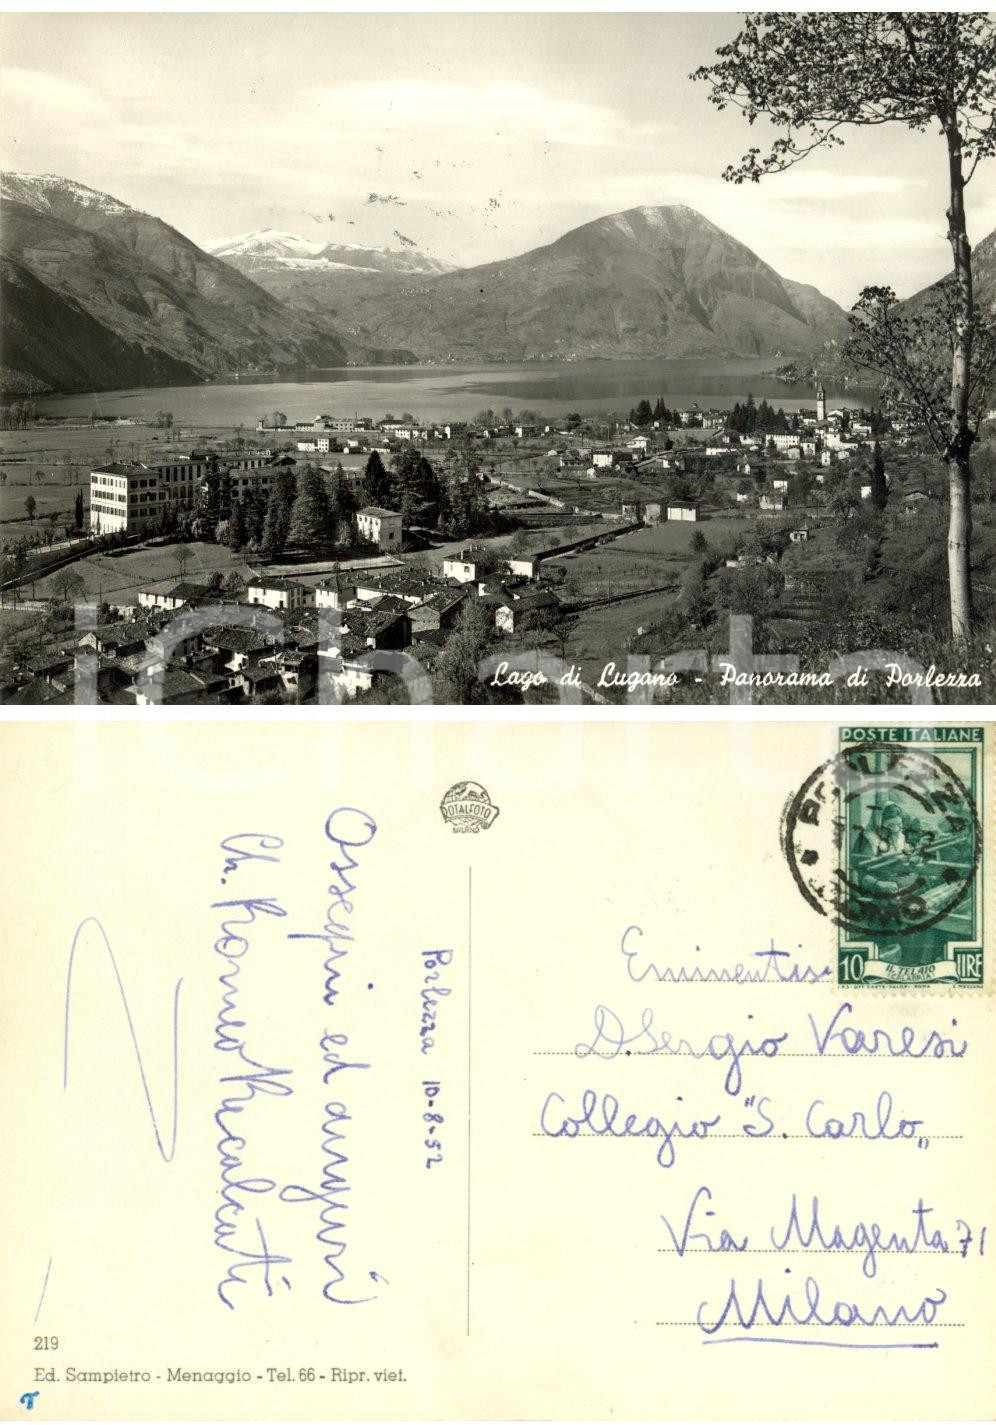 Lago di Lugano - Panorama di Porlezza
iCharta
POSTE ITALIANE
ROTALFOTO
MILANO
PORLEZZA
COMO
10 IL TELAIO LIRE
CALABRIA
I.P.S.-OFF. CARTE-VALORI-ROMA
Ossequi ed auguri
Ch. Romeo Recalcati
Porlezza 10-8-52
D. Sergio Varesi
Collegio "S. Carlo"
Via Magenta 71
Milano
219
Ed. Sampietro - Menaggio - Tel. 66 - Ripr. viet.